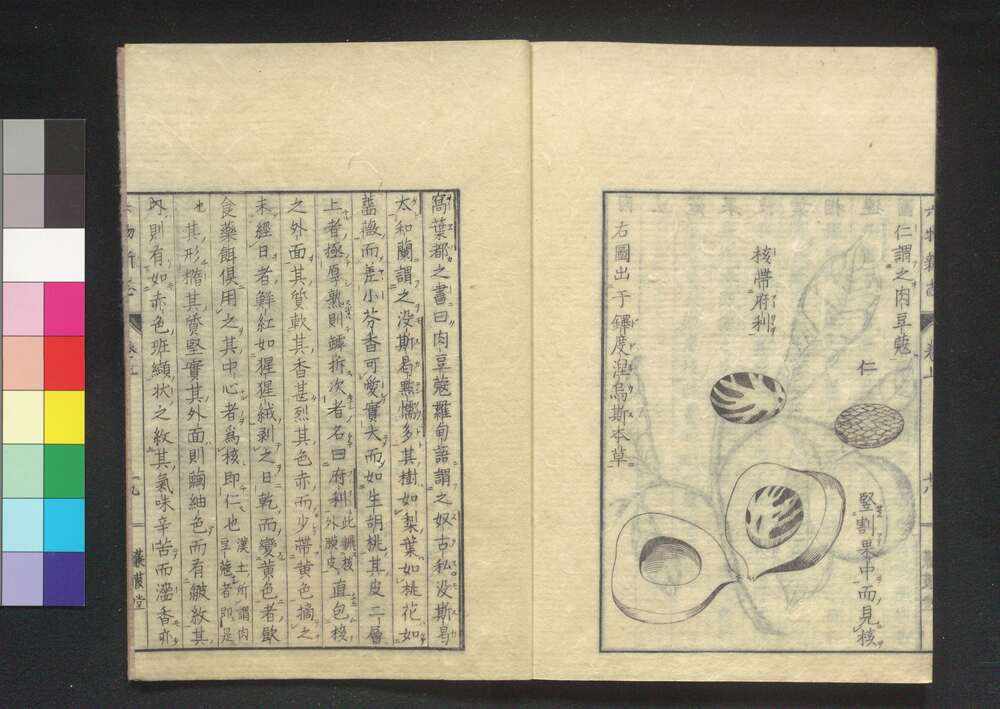 仁謂之肉豆蔻
仁
核帶府利
竪割果中而見核
右圖出于鐸度涅烏斯本草
卷上
蒹葭堂
窩葉都之書曰肉豆蔻羅甸語謂之奴古私没斯曷
太和蘭謂之没斯曷㸃懦多其樹如梨葉如桃花如
薔薇而差小芬香可愛實大而如生胡桃其皮二層
上者極厚熟則罅拆次者名曰府利此纒核外腴皮直包核
之外面其質軟其香甚烈其色赤而少帶黄色摘之
未經日者鮮紅如猩猩絨剥之日乾而變黄色者歟
食藥餌俱用之其中心者爲核即仁也漢土所謂肉豆蔻者即是
也其形橢其質堅實其外面則繭紬色而有皺紋其
内則有如赤色班纈狀之紋其氣味辛苦而澀香亦
蒹葭堂